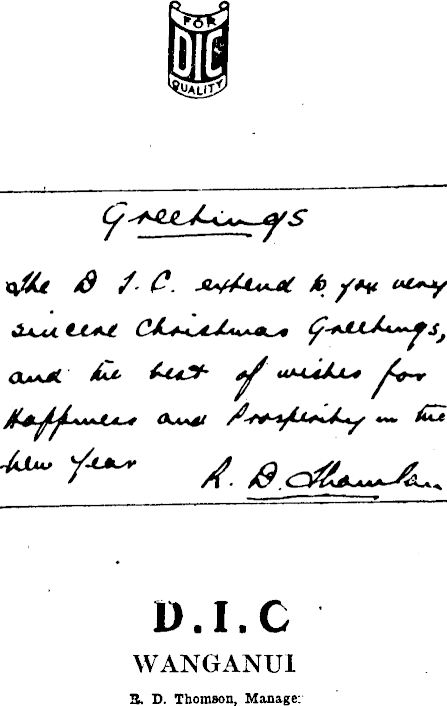 FOR
DIC
QUALITY
Greetings
The D I.C. extend to you very
sincere Christmas Greetings,
and the best of wishes for
Happiness and Prosperity in the
New Year
R. D. Thomson
D.I.C
WANGANUI
R. D. Thomson, Manager